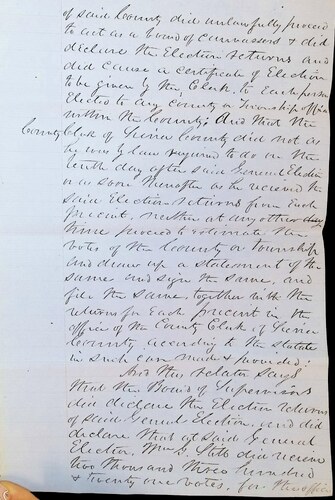 of said County did unlawfully proceed
to act as a board of canvassers & did
declare the Election returns and
did cause a certificate of Election
to be given by the Clerk, to Each person
Elected to any County or Township office
within the County; And that the
County Clerk of Sierra County did not as
he was by law required to do on the
tenth day after said General Election
or as soon thereafter as he received the
said Election returns from Each
precinct, neither at any other day
time proceed to estimate the
votes of the County or township
and draw up a statement of the
same and sign the same, and
file the same, together with the
returns for Each precinct in the
office of the County Clerk, of Sierra
County, according to the Statute
in such case made & provided.
And this relator says
that the Board of Supervisors
did declare the Election returns
of said General Election, and did
declare that at said General
Election, Wm G. did receive
two thousand three hundred
& twenty one votes, for the office